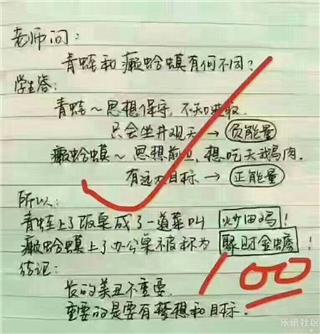 老师问：
青蛙和癞蛤蟆有何不同？
学生答：
青蛙～思想保守，不知进取
只会坐井观天→负能量
癞蛤蟆～思想前卫，想吃天鹅肉，
有远大目标→正能量
所以：
青蛙上了饭桌成了一道菜叫炒田鸡！
癞蛤蟆上了办公桌不但称为聚财金蟾！
传记：
长的美丑不重要
重要的是要有梦想和目标.
100
乐讯社区